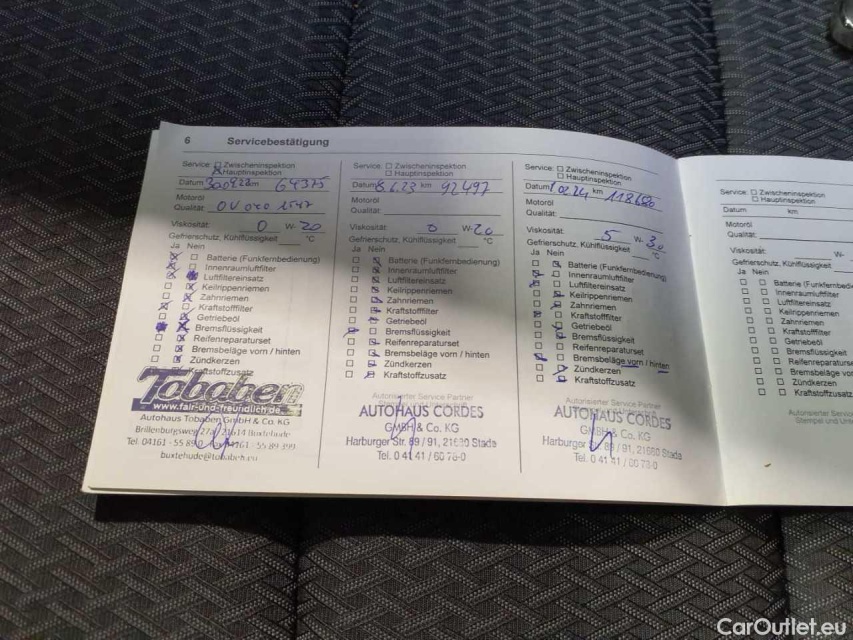 6 Servicebestätigung
Service: Zwischeninspektion
Hauptinspektion
Datum km 64375
Motoröl
Qualität:
Viskosität: 0 W- 20
Gefrierschutz, Kühlflüssigkeit °C
Ja Nein
Batterie (Funkfernbedienung)
Innenraumluftfilter
Luftfiltereinsatz
Keilrippenriemen
Zahnriemen
Kraftstofffilter
Getriebeöl
Bremsflüssigkeit
Reifenreparaturset
Bremsbeläge vorn / hinten
Zündkerzen
Kraftstoffzusatz
Tobaben
www.fair-und-freundlich.de
Autohaus Tobaben GmbH & Co. KG
Brillenburgsweg 27a 21614 Buxtehude
Tel. 04161 - 55 89 04161 - 55 89 399
buxtehude@tobaben.eu
Service: Zwischeninspektion
Hauptinspektion
Datum 8.6.23 km 92497
Motoröl
Qualität:
Viskosität: 0 W- 20
Gefrierschutz, Kühlflüssigkeit °C
Ja Nein
Batterie (Funkfernbedienung)
Innenraumluftfilter
Luftfiltereinsatz
Keilrippenriemen
Zahnriemen
Kraftstofffilter
Getriebeöl
Bremsflüssigkeit
Reifenreparaturset
Bremsbeläge vorn / hinten
Zündkerzen
Kraftstoffzusatz
Autorisierter Service Partner
AUTOHAUS CORDES
GMBH & Co. KG
Harburger Str. 89 / 91, 21680 Stade
Tel. 0 41 41 / 60 78-0
Service: Zwischeninspektion
Hauptinspektion
Datum km 118680
Motoröl
Qualität:
Viskosität: 5 W- 30
Gefrierschutz, Kühlflüssigkeit °C
Ja Nein
Batterie (Funkfernbedienung)
Innenraumluftfilter
Luftfiltereinsatz
Keilrippenriemen
Zahnriemen
Kraftstofffilter
Getriebeöl
Bremsflüssigkeit
Reifenreparaturset
Bremsbeläge vorn / hinten
Zündkerzen
Kraftstoffzusatz
Autorisierter Service Partner
AUTOHAUS CORDES
GMBH & Co. KG
Harburger Str. 89 / 91, 21680 Stade
Tel. 0 41 41 / 60 78-0
Service: Zwischeninspektion
Hauptinspektion
Datum km
Motoröl
Qualität:
Viskosität: W-
Gefrierschutz, Kühlflüssigkeit
Ja Nein
Batterie (Funkfernbedienu
Innenraumluftfilter
Luftfiltereinsatz
Keilrippenriemen
Zahnriemen
Kraftstofffilter
Getriebeöl
Bremsflüssigkeit
Reifenreparaturset
Bremsbeläge vo
Zündkerzen
Kraftstoffzusatz
Autorisierter Service
Stempel und Unte
CarOutlet.eu